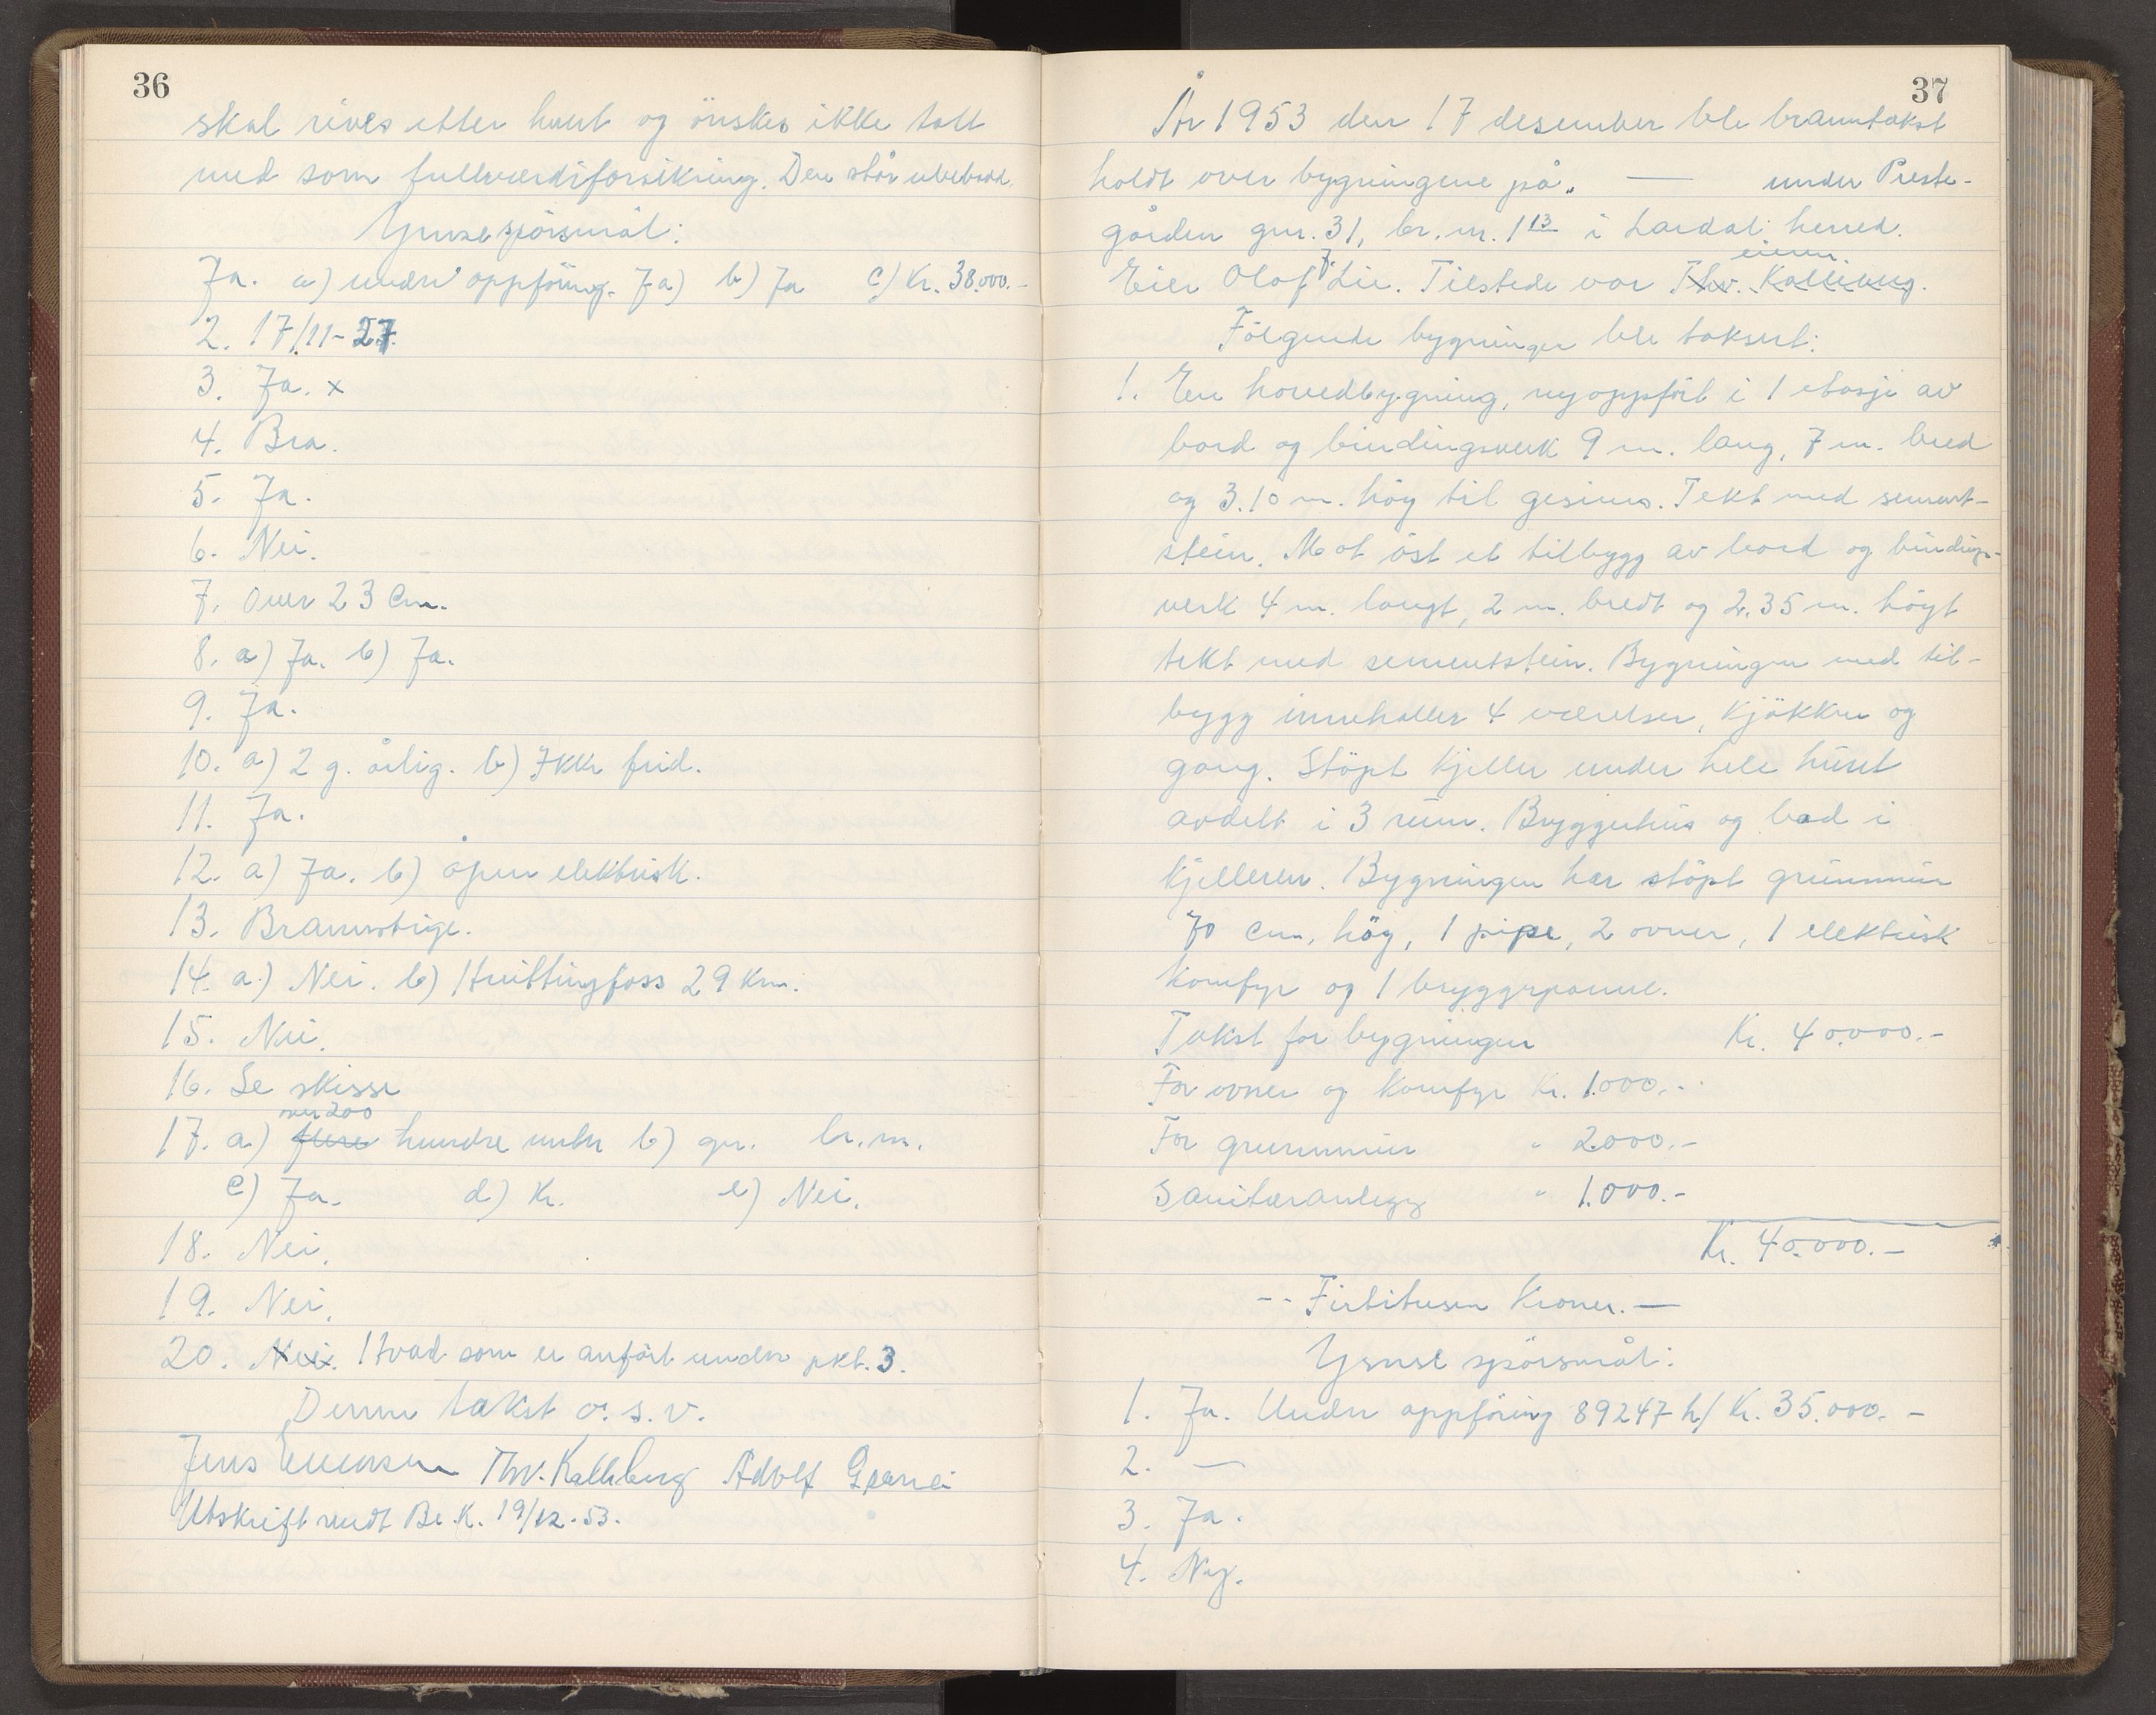 36
skal rives etter hvert og önskes ikke tatt
med som fullverdiforsikring. Den står ubebodd.
Ymse spörsmål:
Ja. a) under oppföring. Ja) b) Ja c) Kr. 38.000.-
2. 17/11-27.
3. Ja. x
4. Bra.
5. Ja.
6. Nei.
7. Over 23 Cm.
8. a) Ja. b) Ja.
9. Ja.
10. a) 2 g. årlig. b) Ikke frid.
11. Ja.
12. a) Ja. b) åpen elektrisk.
13. Brannstige.
14. a) Nei. b) Hvittingfoss 29 Km.
15. Nei.
16. Se skisse
over 200
17. a) flere hundre meter b) gnr. br.nr.
c) Ja. d) Kr. e) Nei.
18. Nei.
19. Nei.
20. Nei. Hvad som er anfört under pkt. 3.
Denne takst o. s. v.
Jens Evensen Thv. Kalleberg Adolf
Utskrift sendt Br. K. 19/12-53.
37
År 1953 den 17 desember ble branntakst
holdt over bygningene på „ — under Preste-
gården gnr. 31, br. nr. 1 13 i Lardal herred.
eieren
Eier Olaf J. Lie. Tilstede var Thv. Kalleberg.
Fölgende bygninger ble taksert:
1. En hovedbygning, nyoppfört i 1 etasje av
bord og bindingsverk 9 m. lang, 7 m. bred
og 3.10 m. höy til gesims. Tekt med sement-
stein. Mot öst et tilbygg av bord og bindings-
verk 4 m. langt, 2 m. bredt og 2.35 m. höyt
tekt med sementstein. Bygningen med til-
bygg inneholder 4 værelser, kjökken og
gang. Stöpt kjeller under hele huset
avdelt i 3 rum. Bryggerhus og bad i
kjelleren. Bygningen har stöpt grunnmur
70 Cm. höy, 1 pipe, 2 ovner, 1 elektrisk
Komfyr og 1 bryggepanne.
Takst for bygningen Kr. 40.000.-
For ovner og Komfyr Kr. 1.000.-
For grunnmur " 2.000.-
Sanitæranlegg " 1.000.-
Kr. 40.000.-
-- Firtitusen Kroner. —
Ymse spörsmål:
1. Ja. Under oppföring 89247 h/ Kr. 35.000.-
2. —
3. Ja.
4. Ny.